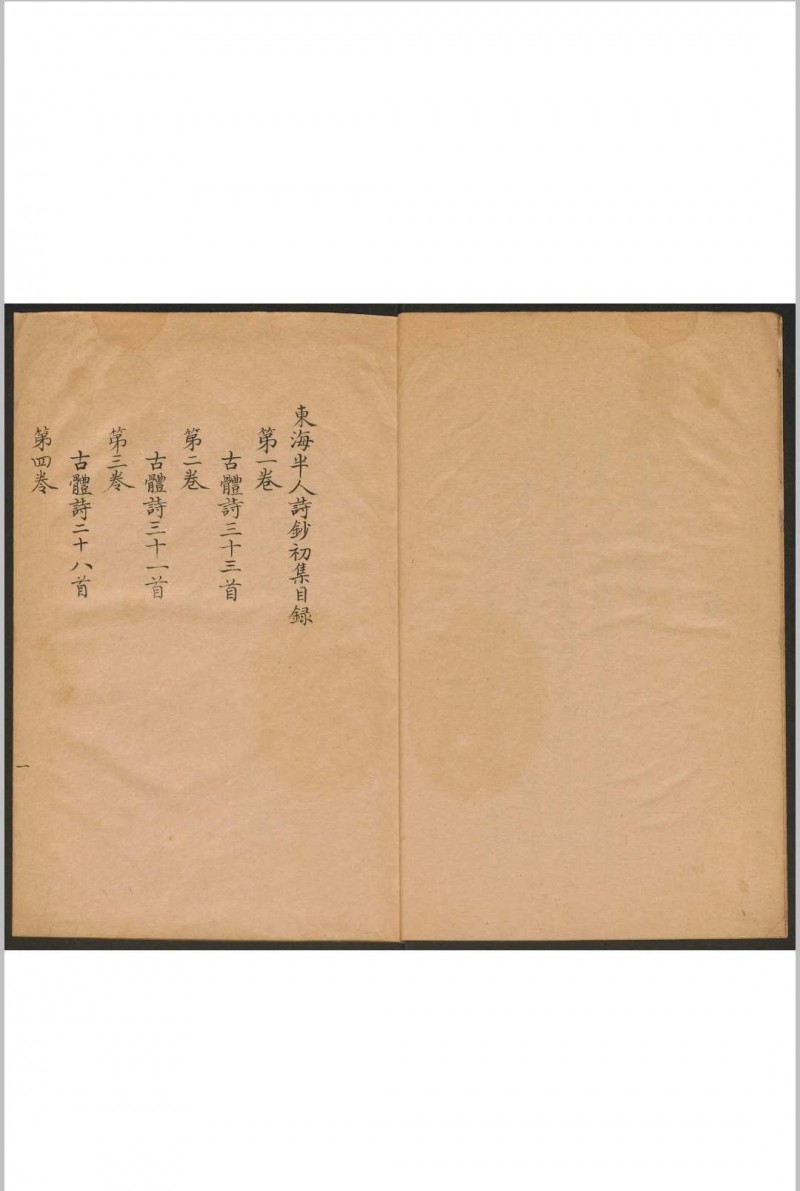 東海半人詩鈔初集目録
第一卷
古體詩三十三首
第二卷
古體詩三十一首
第三卷
古體詩二十八首
第四卷
一